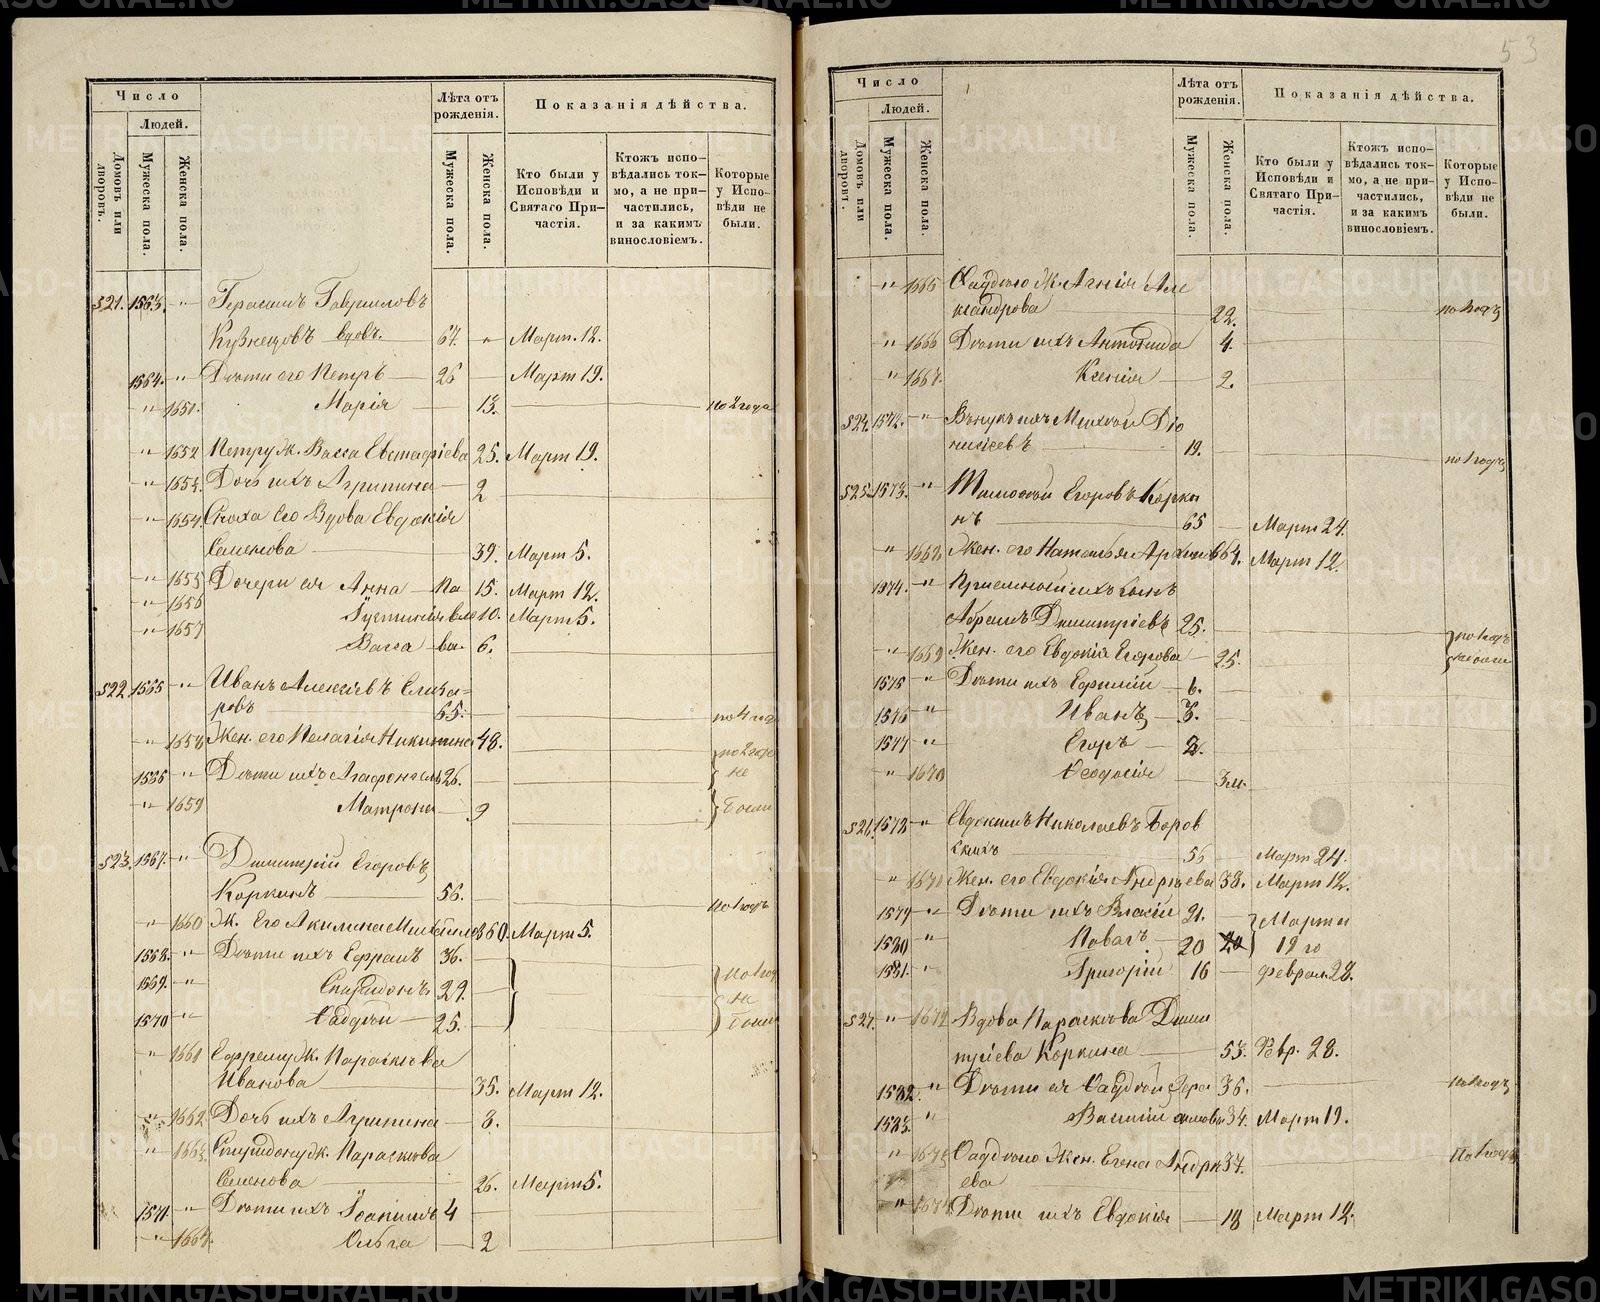 53
Число
Людей.
Домовъ или дворовъ.
Мужеска пола.
Женска пола.
Лѣта отъ рожденія.
Мужеска пола.
Женска пола.
Показанія дѣйства.
Кто были у Исповѣди и Святаго Причастія.
Ктожъ исповѣдались токмо, а не причастились, и за какимъ винословіемъ.
Которые у Исповѣди не были.
521. 1563. -"- Герасимъ Гавриловъ
Кузнецовъ вдовъ. 67. " Март. 12.
1564. -"- Дѣти его Петръ 26 Март 19.
-"- 1651. Марія 13. по 2 года
-"- 1652 Петру Ж. Васса Евстафіева 25. Март 19.
-"- 1653. Дочь ихъ Агрипина 2
-"- 1654. Сноха Его Вдова Евдокія
Семенова 39. Март 5.
-"- 1655 Дочери ея Анна 15. Март 12.
-"- 1656 Іустинія 10. Март 5.
-"- 1657 Васса 6.
522. 1565 -"- Иванъ Алексіевъ Елиза=
ровъ 65.
-"- 1658 Жен. его Пелагія Никитина 48. по 2 года
1566 -"- Дѣти ихъ Агафонгелъ 26. не
-"- 1659 Матрона 9 были
523. 1567. -"- Димитрій Егоровъ
Коркинъ 56. по 1 годъ
-"- 1660 Ж. Его Акилина 60. Март 5.
1568. -"- Дѣти ихъ Ефремъ 36. по 1 год
1569. -"- Спиридонъ 29. не
1570 -"- Фаддѣй 25. были
-"- 1661 Ефрему Ж. Параскева
Иванова 35. Март 12.
-"- 1662. Дочь ихъ Агрипина 8.
-"- 1663. Спиридону Ж. Параскева
Семенова 26. Март 5.
1571. -"- Дѣти ихъ Іоакимъ 4
-"- 1664. Ольга 2
Число
Людей.
Домовъ или дворовъ.
Мужеска пола.
Женска пола.
Лѣта отъ рожденія.
Мужеска пола.
Женска пола.
Показанія дѣйства.
Кто были у Исповѣди и Святаго Причастія.
Ктожъ исповѣдались токмо, а не причастились, и за какимъ винословіемъ.
Которые у Исповѣди не были.
-"- 1665 Фаддѣю Ж. Агнія Але
ксандрова 22. по 1 годъ
-"- 1666 Дѣти ихъ Антонида 4.
-"- 1667. Ксенія 2.
524. 1572. -"- Внукъ ихъ Матвѣй Діо
нисіевъ 19. по 1 годъ
525. 1573. -"- Тимофей Егоровъ Корки
нъ 65 Март 24.
-"- 1668. Жен. его Наталья 64. Март 12.
1574. -"- Пріемной ихъ сынъ
Абрамъ Димитріевъ 25. по 1 годъ
-"- 1669 Жен. его Евдокія Егорова 25. не были
1575 -"- Дѣти ихъ Ефимій 6.
1576 -"- Иванъ 3.
1577 -"- Егоръ 2.
-"- 1670 Феодосія 3 м.
526. 1578 -"- Евдокимъ Николаевъ Боров
скихъ 56 Март 24.
-"- 1671 Жен. его Евдокія Андреева 38. Март 12.
1579 -"- Дѣти ихъ Власій 21. Марта
1580 -"- Павелъ 20 19 го
1581. -"- Григорій 16 Феврал. 28.
527. -"- 1672 Вдова Параскева Дими
тріева Коркина 53. Февр. 28.
1582. -"- Дѣти ея Фаддѣй 36. по 1 годъ
1583. -"- Василій 34. Март 19.
-"- 1673 Фаддѣю Жен. Елена Андре 37. По 1 годъ
ева
-"- 1674 Дѣти ихъ Евдокія 18 Март 12.
METRIKI.GASO-URAL.RU